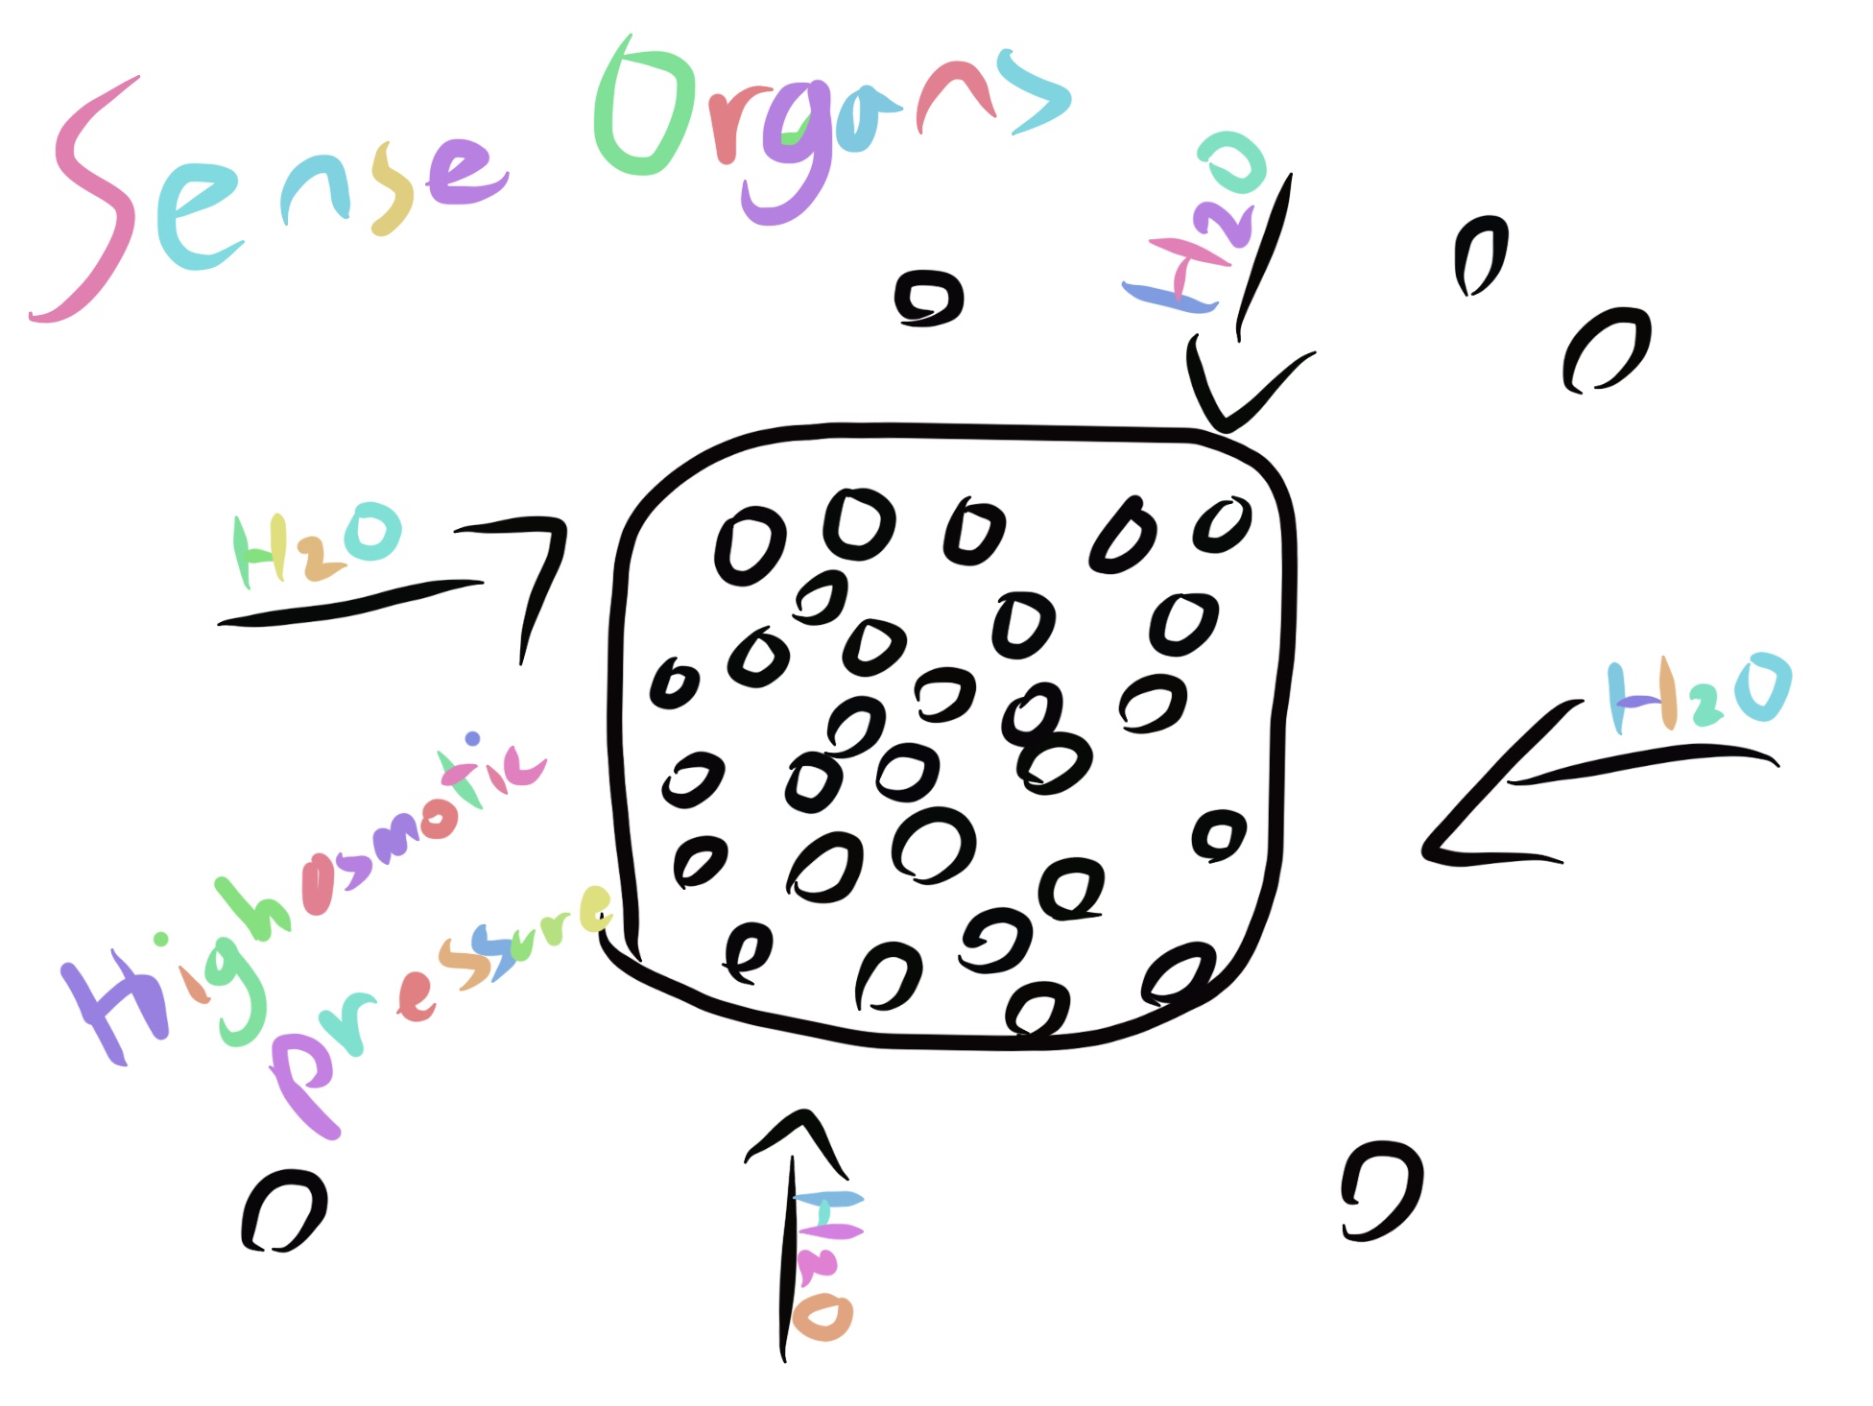 Sense Organs
H2O
H2O
H2O
High osmotic
pressure
H2O